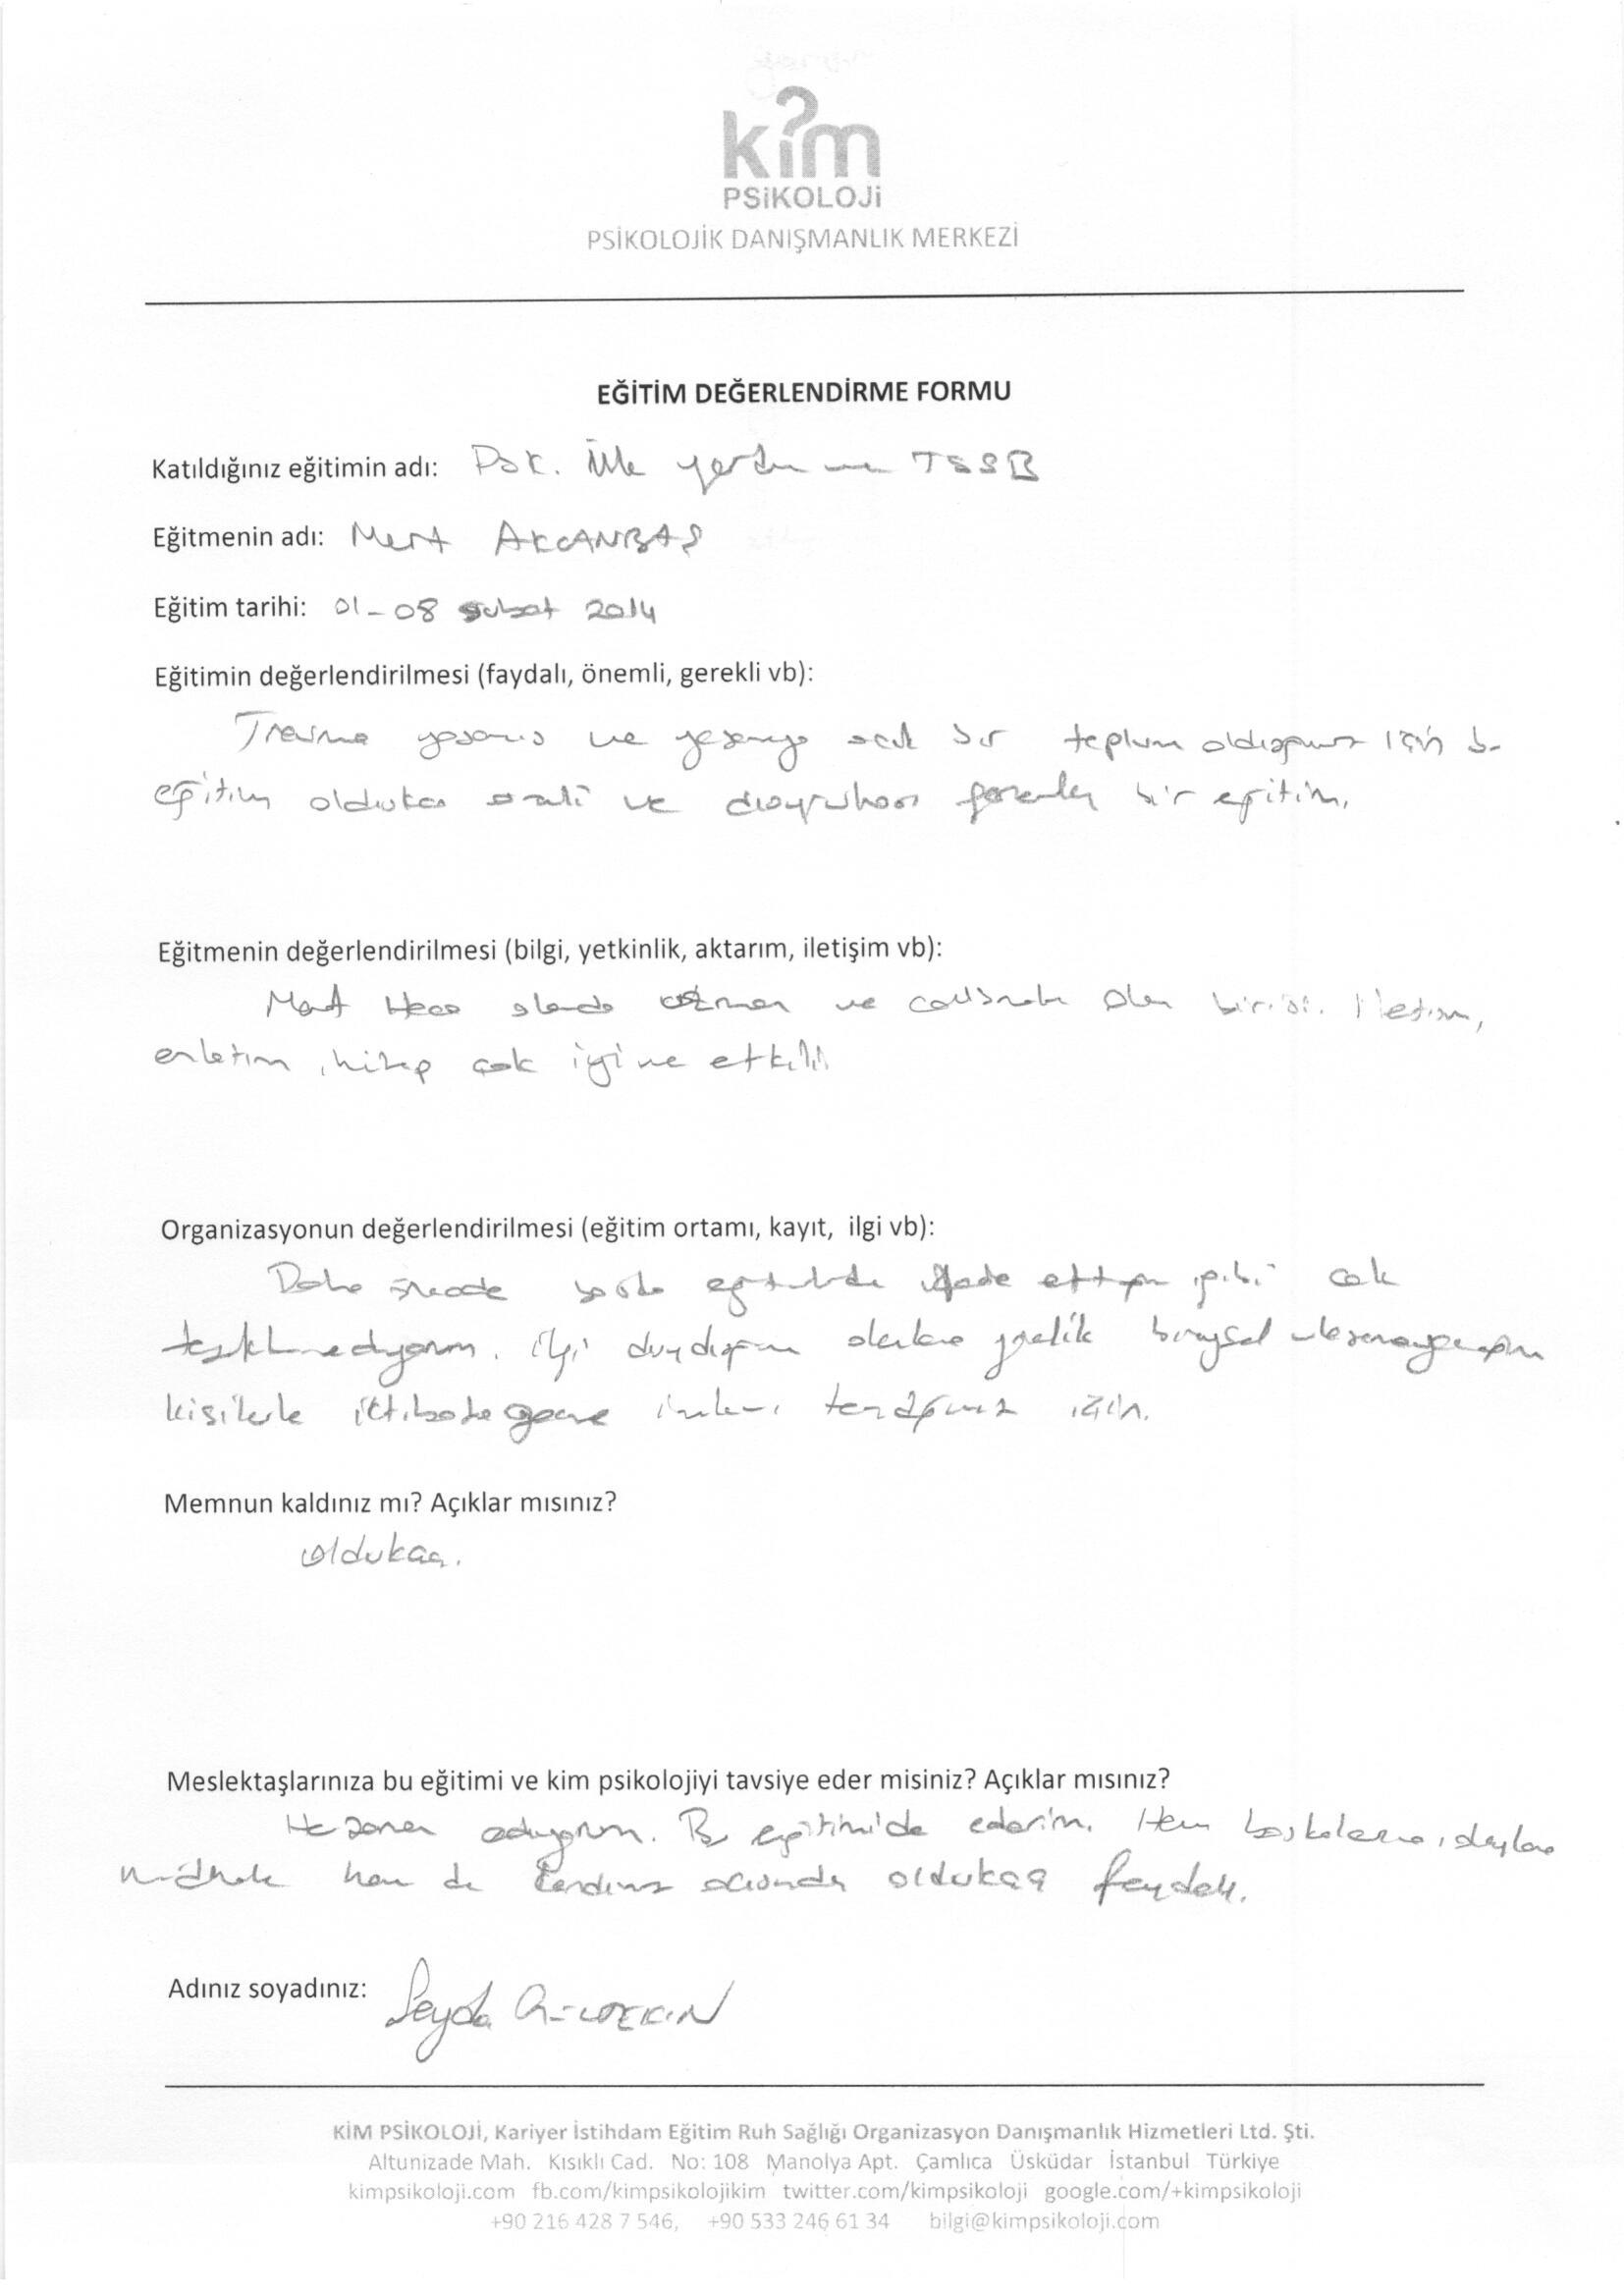 kim
PSiKOLOJi
PSİKOLOJİK DANIŞMANLIK MERKEZİ
EĞİTİM DEĞERLENDİRME FORMU
Katıldığınız eğitimin adı: Psk. İlk yardım ve TSSB
Eğitmenin adı: Mert AKCANBAŞ
Eğitim tarihi: 01-08 Şubat 2014
Eğitimin değerlendirilmesi (faydalı, önemli, gerekli vb):
Travma yaşamış ve yaşamaya açık bir toplum olduğumuz için bu
eğitim oldukça önemli ve bir eğitim.
Eğitmenin değerlendirilmesi (bilgi, yetkinlik, aktarım, iletişim vb):
Mert Hoca alanda uzman ve çalışmaları olan birisi. İletişim,
anlatım, hitap çok iyi ve etkili
Organizasyonun değerlendirilmesi (eğitim ortamı, kayıt, ilgi vb):
Daha önce de başka eğitimlerde ifade ettiğim gibi çok
teşekkür ediyorum. İlgi duyduğum alanlara yönelik bireysel ulaşamayacağım
kişilerle irtibata geçme imkanı tanıdığınız için.
Memnun kaldınız mı? Açıklar mısınız?
Oldukça.
Meslektaşlarınıza bu eğitimi ve kim psikolojiyi tavsiye eder misiniz? Açıklar mısınız?
Her zaman ediyorum. Bu eğitimi de ederim. Hem başkalarına, olaylara
müdahale hem de kendimiz açısından oldukça faydalı.
Adınız soyadınız: Şeyda
KİM PSİKOLOJİ, Kariyer İstihdam Eğitim Ruh Sağlığı Organizasyon Danışmanlık Hizmetleri Ltd. Şti.
Altunizade Mah. Kısıklı Cad. No: 108 Manolya Apt. Çamlıca Üsküdar İstanbul Türkiye
kimpsikoloji.com fb.com/kimpsikolojikim twitter.com/kimpsikoloji google.com/+kimpsikoloji
+90 216 428 7 546, +90 533 246 61 34 bilgi@kimpsikoloji.com